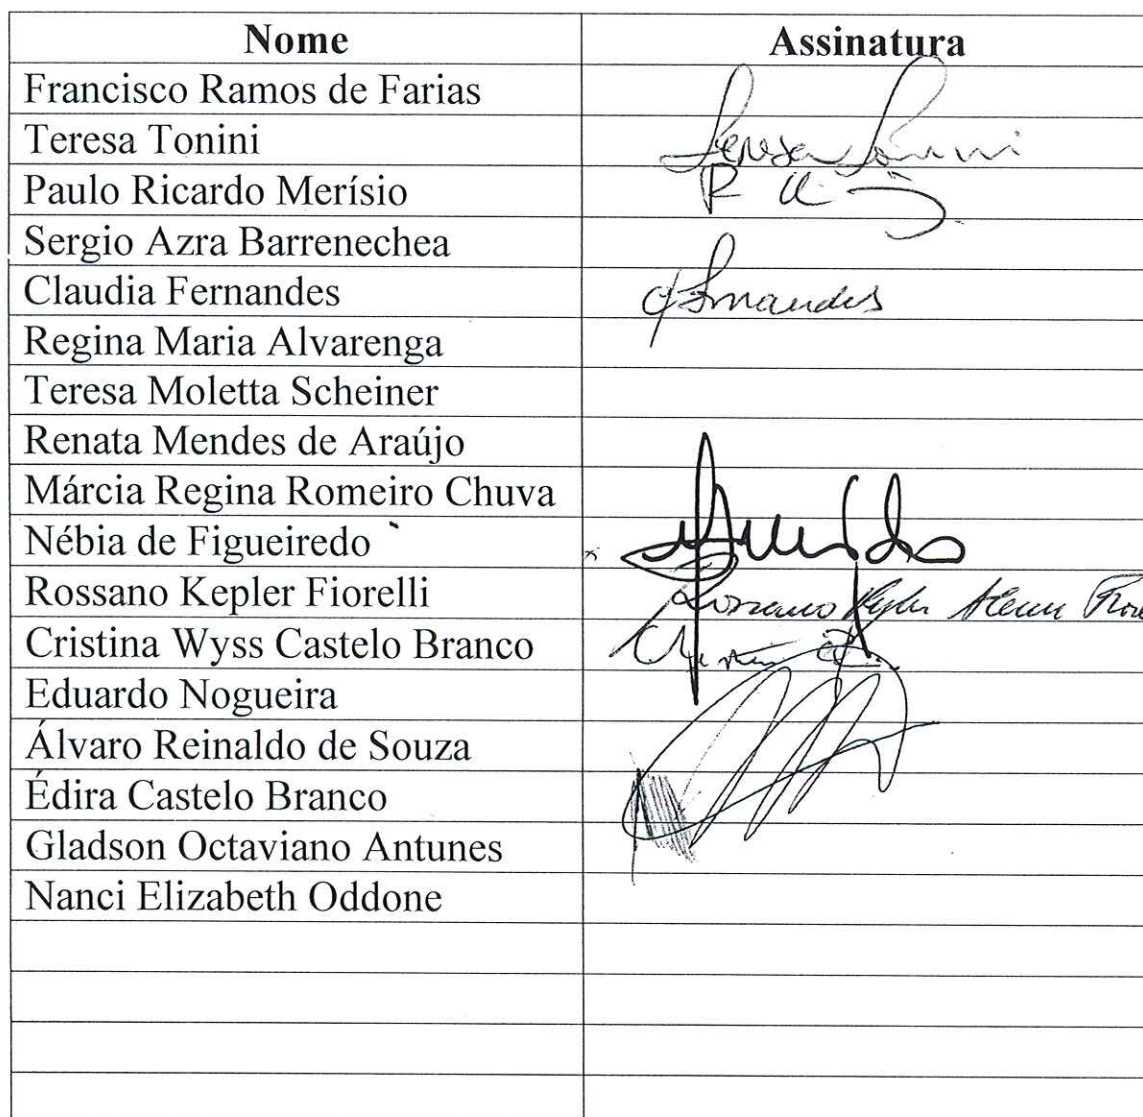 Nome Assinatura
Francisco Ramos de Farias
Teresa Tonini Teresa Tonini
Paulo Ricardo Merísio
Sergio Azra Barrenechea
Claudia Fernandes CFernandes
Regina Maria Alvarenga
Teresa Moletta Scheiner
Renata Mendes de Araújo
Márcia Regina Romeiro Chuva
Nébia de Figueiredo
Rossano Kepler Fiorelli Rossano Kepler
Cristina Wyss Castelo Branco
Eduardo Nogueira
Álvaro Reinaldo de Souza
Édira Castelo Branco
Gladson Octaviano Antunes
Nanci Elizabeth Oddone